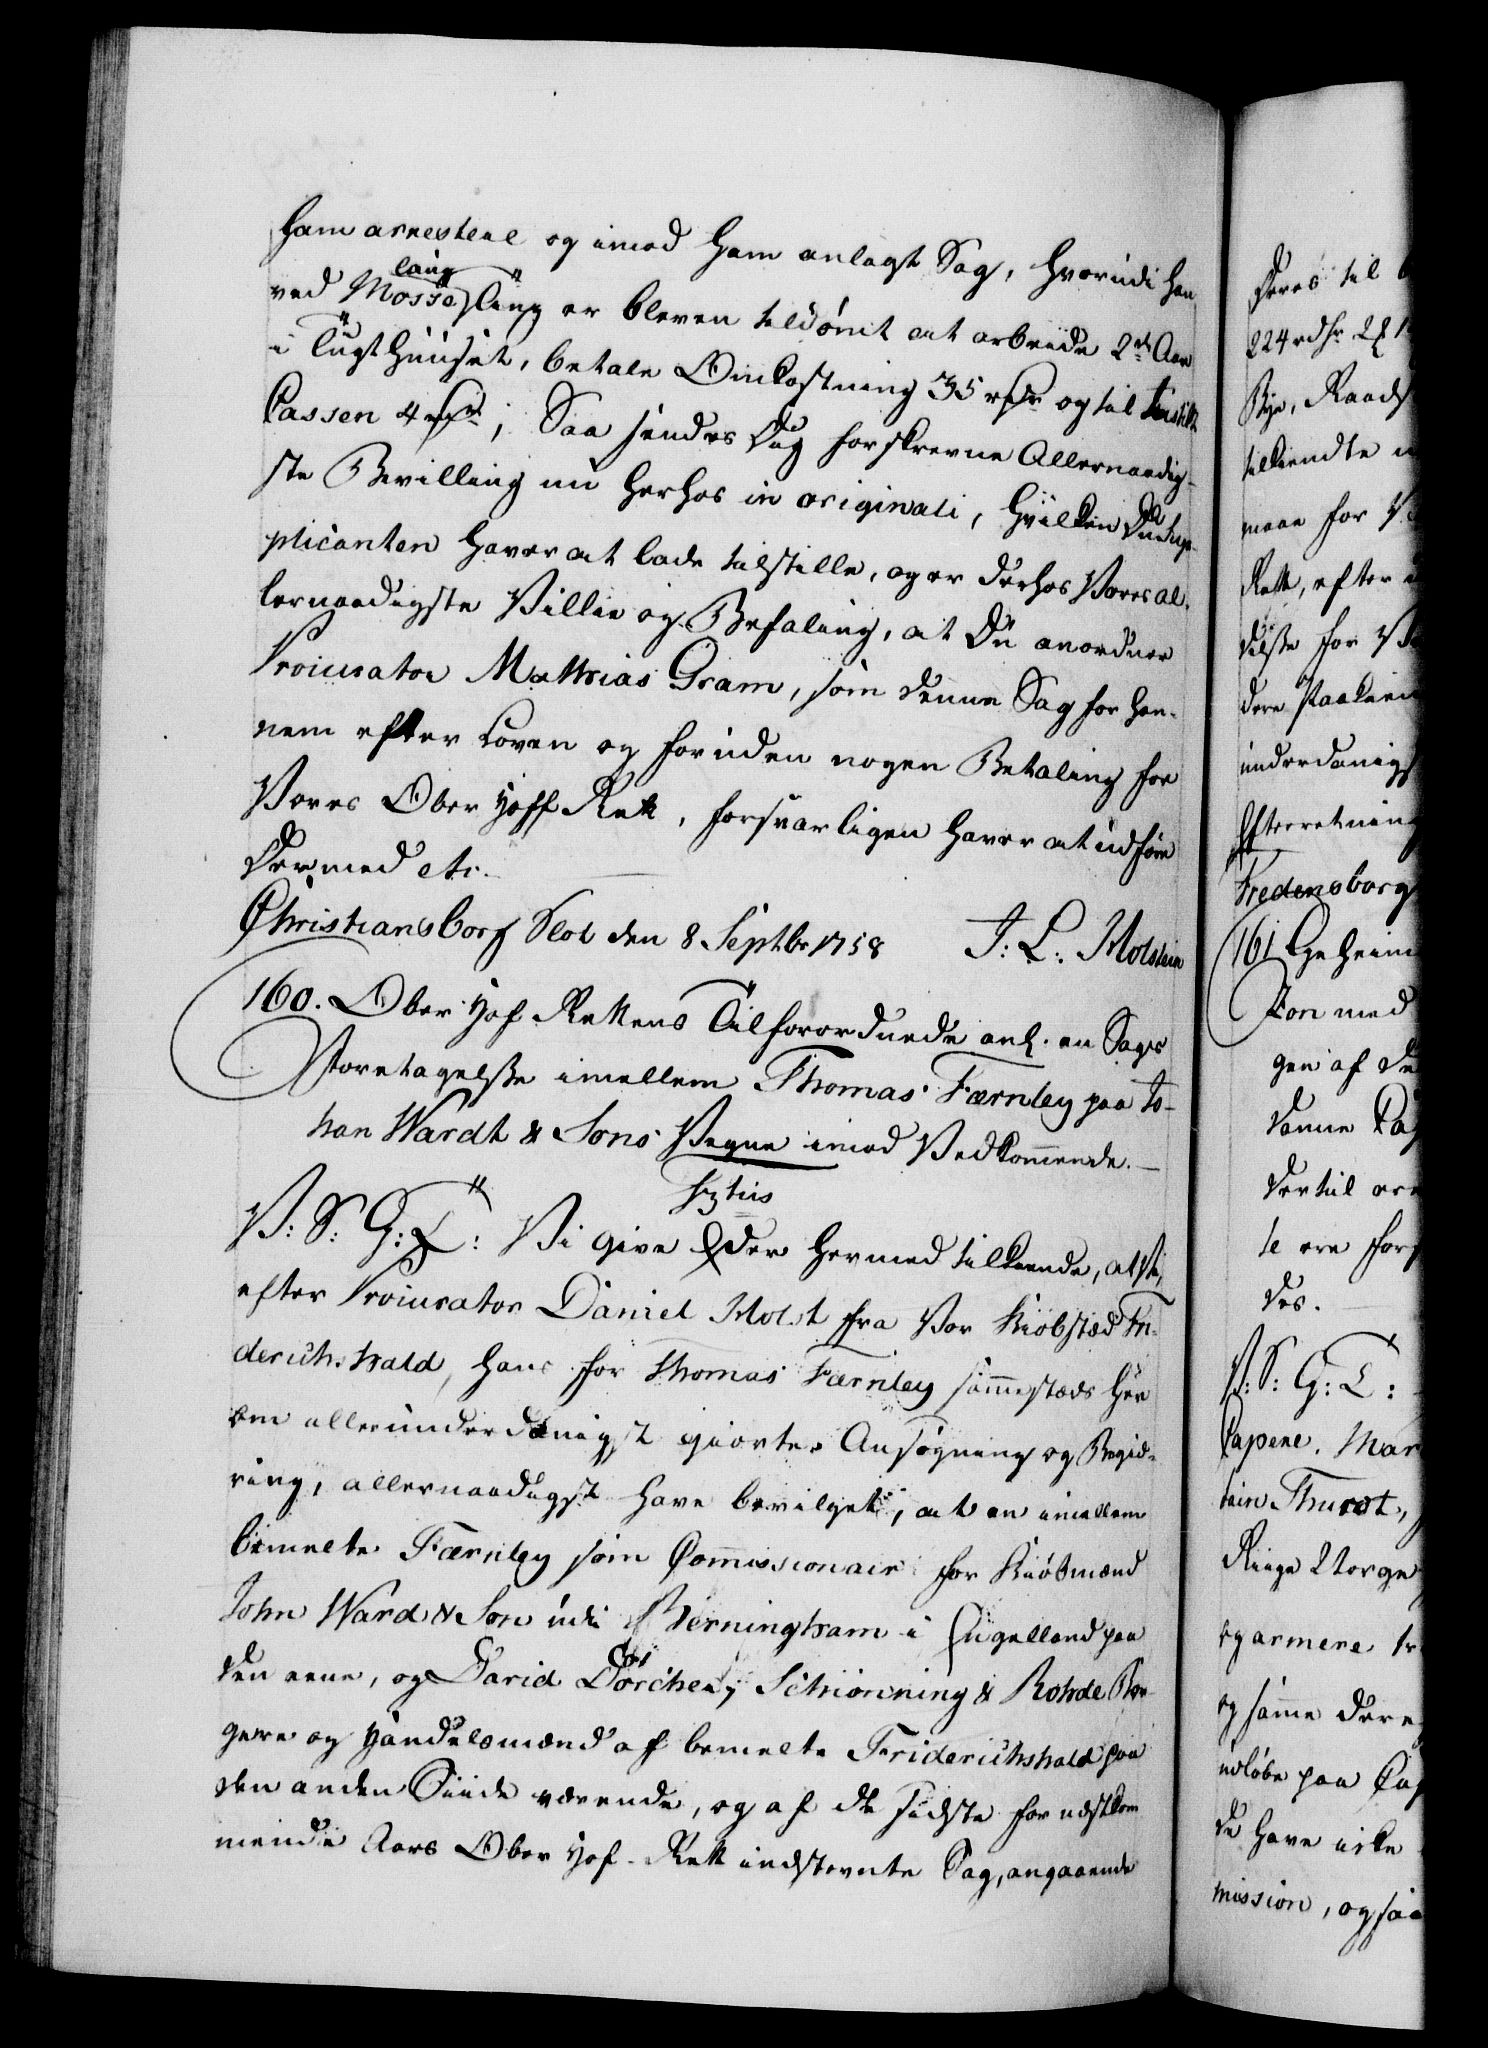 ham arrestere og imod ham anlagt Sag, hvorudi han
ved Mosse laug Ting er bleven tildömt at arbeide 2de Aar
i Tugthuuset, betale Omkostning 35 rdr og til Justitz
Cassen 4 rdr; Saa sendes Dig forskrevne Allernaadig-
ste Bevilling nu herhos in originali, hvilken Du Sup-
plicanten haver at lade tilstille, og er derhos Vores al-
lernaadigste Villie og Befaling, at Du anordner
Procurator Mathias Gram, som denne Sag for hen-
nem efter Loven og foruden nogen Betaling for
Vores Ober Hoff Rett, forsvarligen haver at udføre
Dermed etc.
Christiansborg Slot den 8 Septbr 1758 J: L: Holstein
160. Ober Hof Rettens Tilforordnede anl. en Sags
Foretagelse imellem Thomas Færnley paa Jo-
han Wardt & Sons Vegne imod Vedkommende.
V: S: G: T: Vi give Eder hermed tilkiende, at Vi,
efter Procurator Daniel Holst fra Vor Kiöbstæd Fri-
derichshald, hans for Thomas Færnley sammestæds her
om allerunderdanigst giorte Ansøgning og Begiæ-
ring, allernaadigst have bevilget, at en imellem
bemelte Færnley som Commissionair for Kiöbmænd
John Ward & Son udi Berningham i Engelland paa
den eene, og David Dörcher, Schiönning & Rohde Bor-
gere og Handelsmænd af bemelte Friderichshald paa
den anden Siide værende, og af de sidste for nestkom
mende Aars Ober Hof-Rett indstevnte Sag, angaaende
Deres til
224 rdr 2
Bye, Raads
tilkiendte
mone for V
Rett, efter
delse for V
dere Paakien
underdanigs
Efterretning
Fredensborg
161 Geheim
Ton med
gen af de
danne Cap
dertil ere
te ere for
des.
V: S: G: T:
Capene. Mar
tain Thurot,
Riige Norge
og armere
og samme dere
udløbe paa Cap
de have icke
mission, og saa